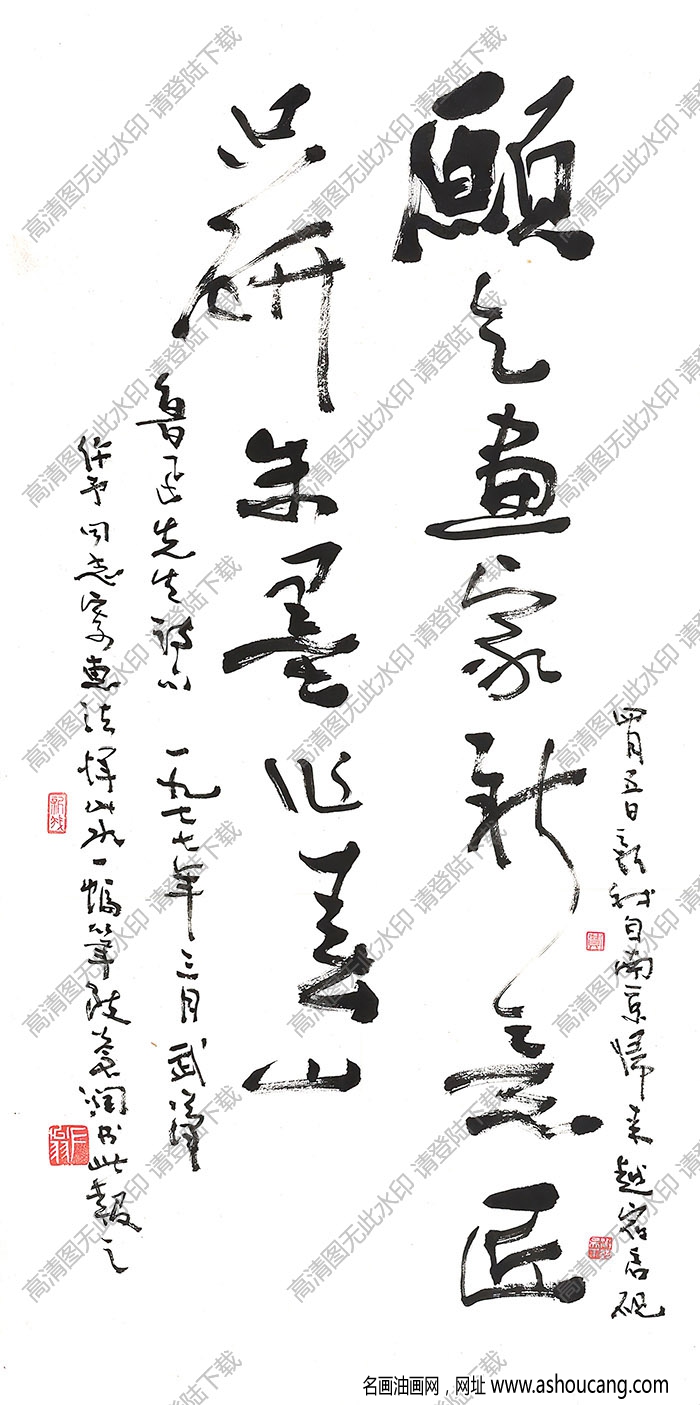 願乞畫家新意匠
只研朱墨作春山
魯迅先生詩句 一九七七年三月 武漢
同志 惠法 山水一幅筆 意潤書此報之
四月五日新我自南京歸來越宿居硯
高清图无此水印 请登陆下载
名画油画网，网址 www.ashoucang.com